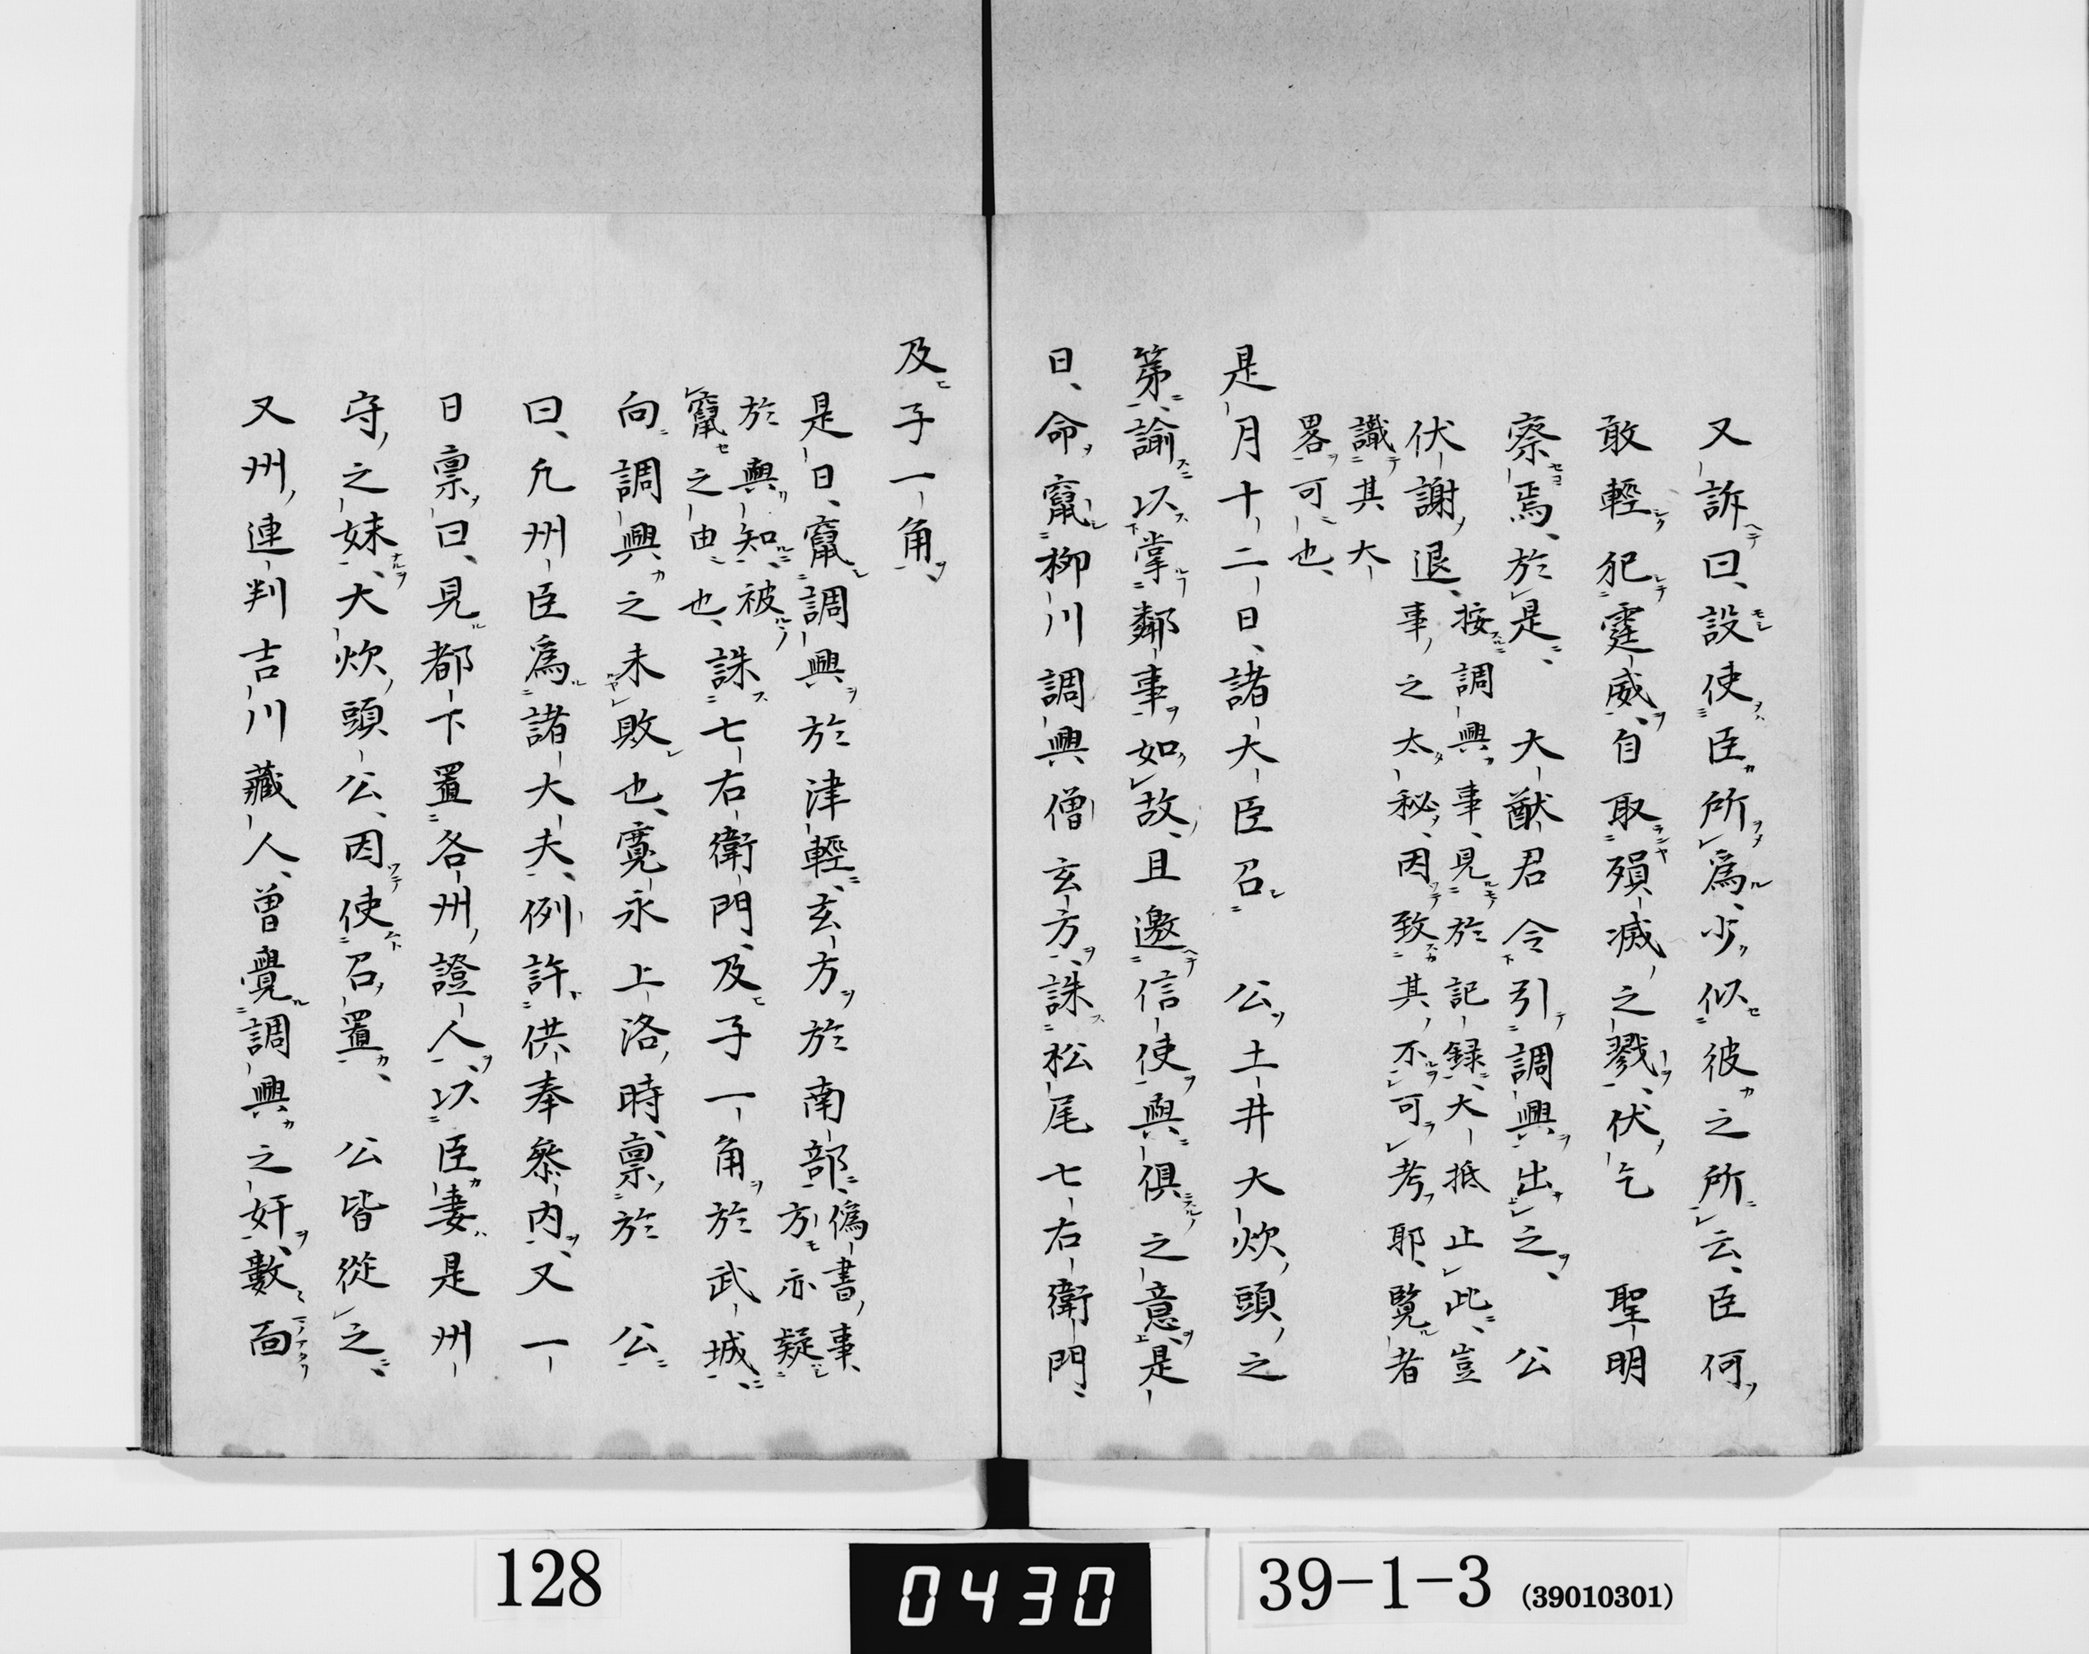 又訴曰、設使臣所爲、少似彼之所云、臣何
敢輕犯霆威、自取殞滅之戮、伏乞　聖明
察焉、於是、　大猷君令引調興出之、　公
伏謝退、按調興事、見於記録、大抵止此、豈
事之太秘、因致其不可考耶、覽者
識其大
畧可也、
是月十二日、諸大臣召　公土井大炊頭之
第諭以掌鄰事如故、且邀信使與倶之意、是
日、命竄柳川調興僧玄方、誅松尾七右衛門、
及子一角、
是日、竄調興於津輕、玄方於南部、偽書事、
方亦疑
於與知、被
竄之由也、誅七右衛門、及子一角於武城、
向調興之未敗也、寛永上洛時、禀於　公
曰、凡州臣爲諸大夫、例許供奉參内、又一
日禀曰、見都下置各州證人、以臣妻是州
守之妹、大炊頭公、因使召置、　公皆從之、
又州連判吉川藏人、曾覺調興之奸、數面
128
0430
39-1-3 (39010301)